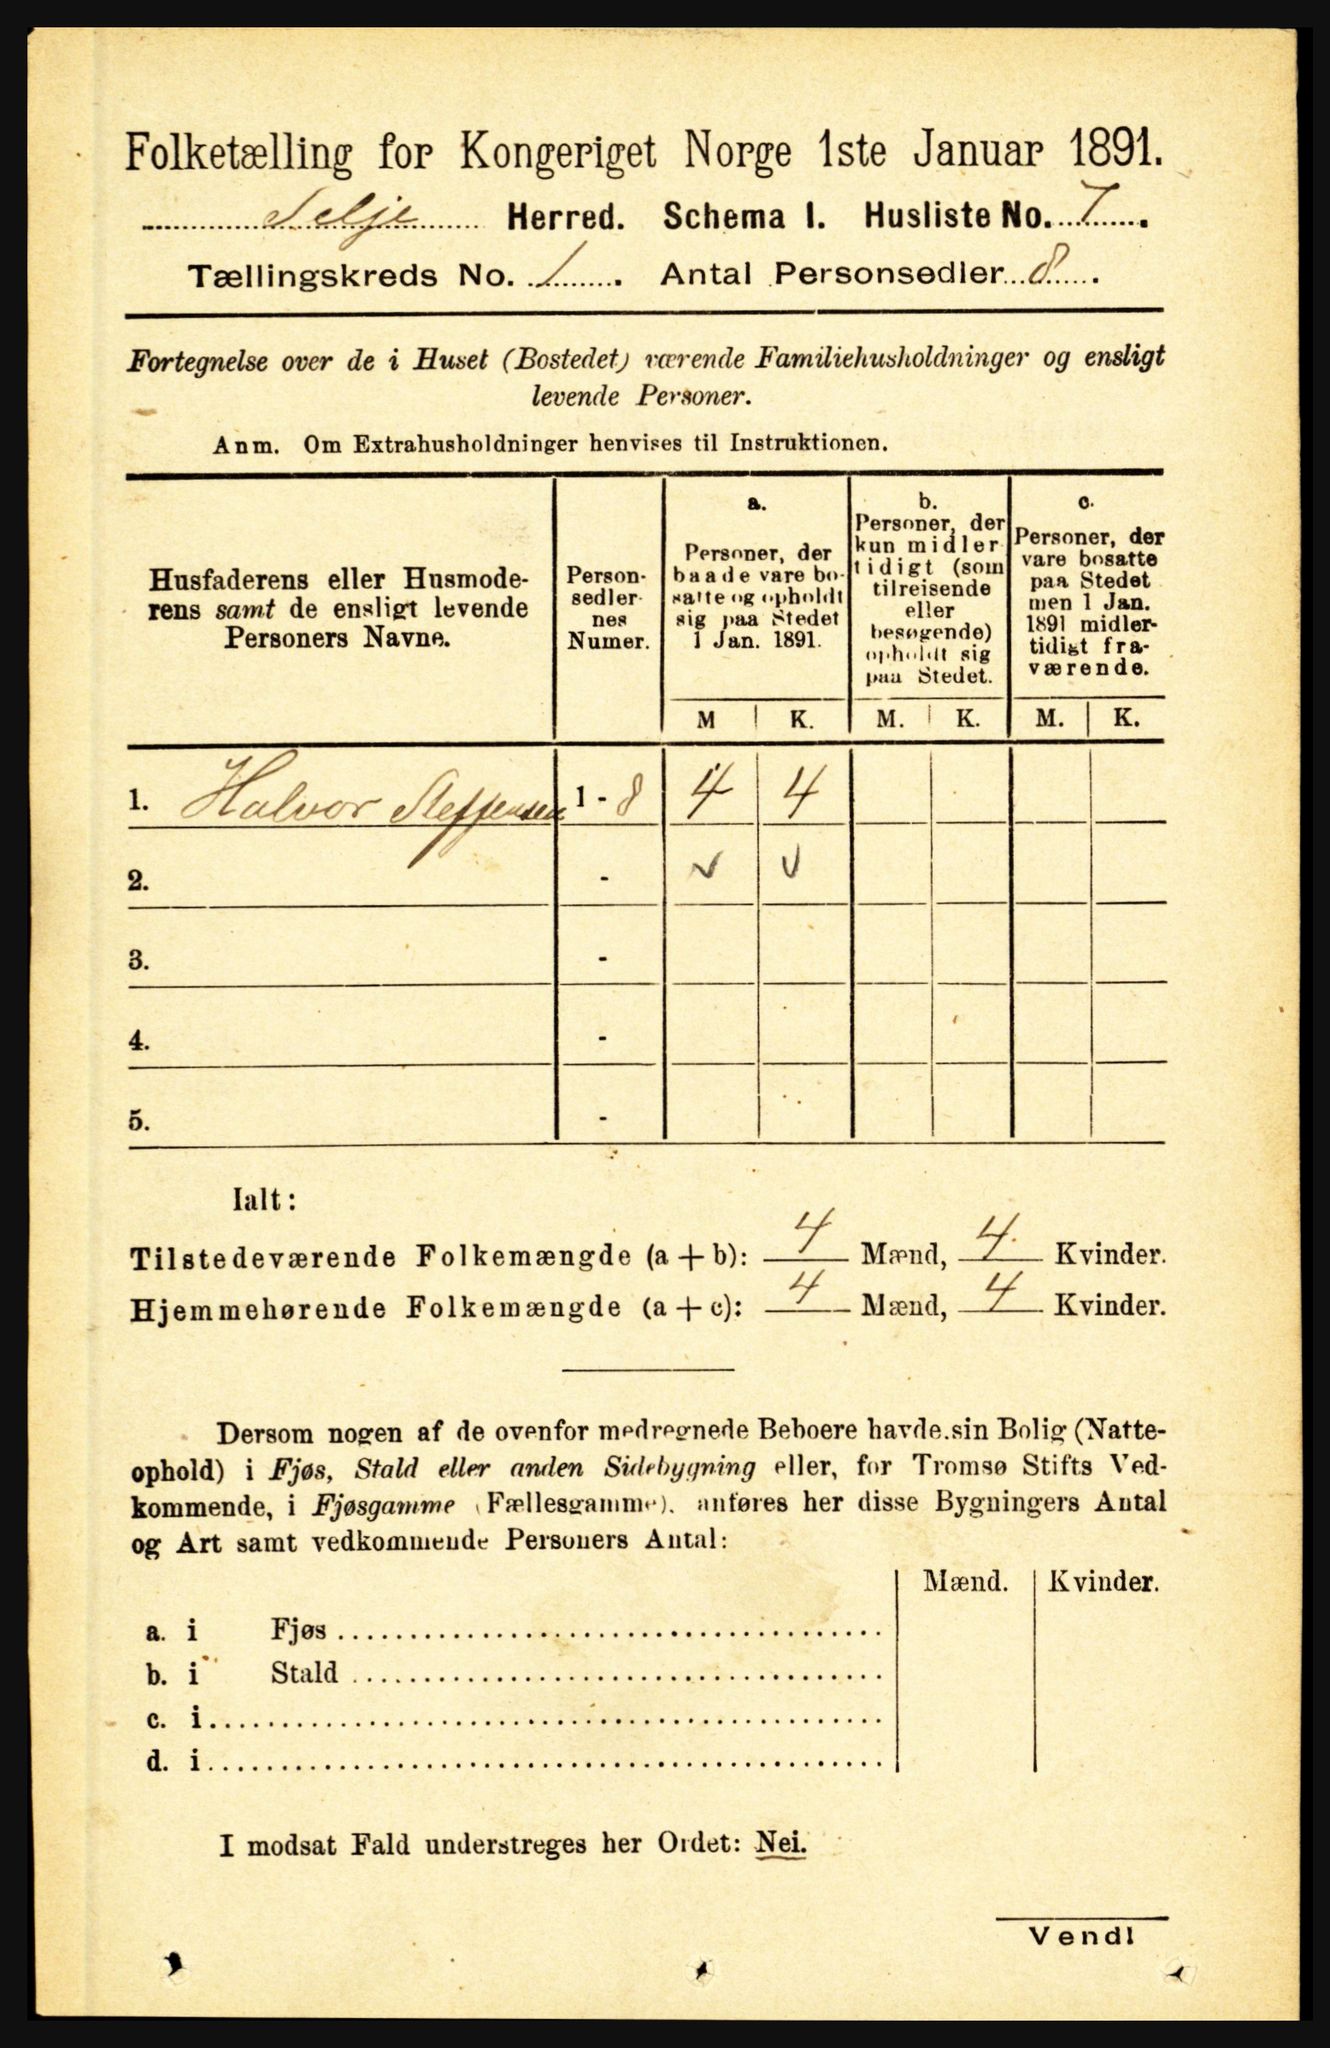 Folketælling for Kongeriget Norge 1ste Januar 1891.
Selje Herred. Schema I. Husliste No. 7.
Tællingskreds No. 1. Antal Personsedler 8.
Fortegnelse over de i Huset (Bostedet) værende Familiehusholdninger og ensligt
levende Personer.
Anm. Om Extrahusholdninger henvises til Instruktionen.
Husfaderens eller Husmode-
rens samt de ensligt levende
Personers Navne.
Person-
sedler-
nes
Numer.
a.
Personer, der
baade vare bo-
satte og opholdt
sig paa Stedet
1 Jan. 1891.
b.
Personer, der
kun midler
tidigt (som
tilreisende
eller
besøgende)
opholdt sig
paa Stedet.
c.
Personer, der
vare bosatte
paa Stedet
men 1 Jan.
1891 midler-
tidigt fra-
værende.
M K. M. K. M. K.
1. Halvor Steffensen 1 - 8 4 4
2. -
3. -
4. -
5. -
Ialt:
Tilstedeværende Folkemængde (a + b): 4 Mænd, 4 Kvinder.
Hjemmehørende Folkemængde (a + c): 4 Mænd, 4 Kvinder.
Dersom nogen af de ovenfor medregnede Beboere havde sin Bolig (Natte-
ophold) i Fjøs, Stald eller anden Sidebygning eller, for Tromsø Stifts Ved-
kommende, i Fjøsgamme (Fællesgamme), anføres her disse Bygningers Antal
og Art samt vedkommende Personers Antal:
Mænd. Kvinder.
a. i Fjøs
b. i Stald
c. i
d. i
I modsat Fald understreges her Ordet: Nei.
Vend!